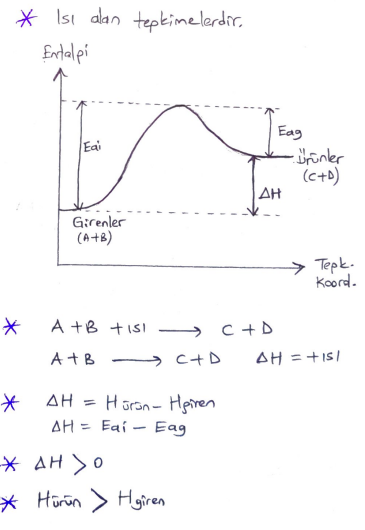 * Isı alan tepkimelerdir.
Entalpi
Eai
Eag
Ürünler
(C+D)
ΔH
Girenler
(A+B)
Tepk.
koord.
* A + B + ısı ⟶ C + D
A + B ⟶ C + D ΔH = + ısı
* ΔH = Hürün - Hgiren
ΔH = Eai - Eag
* ΔH > 0
* Hürün > Hgiren